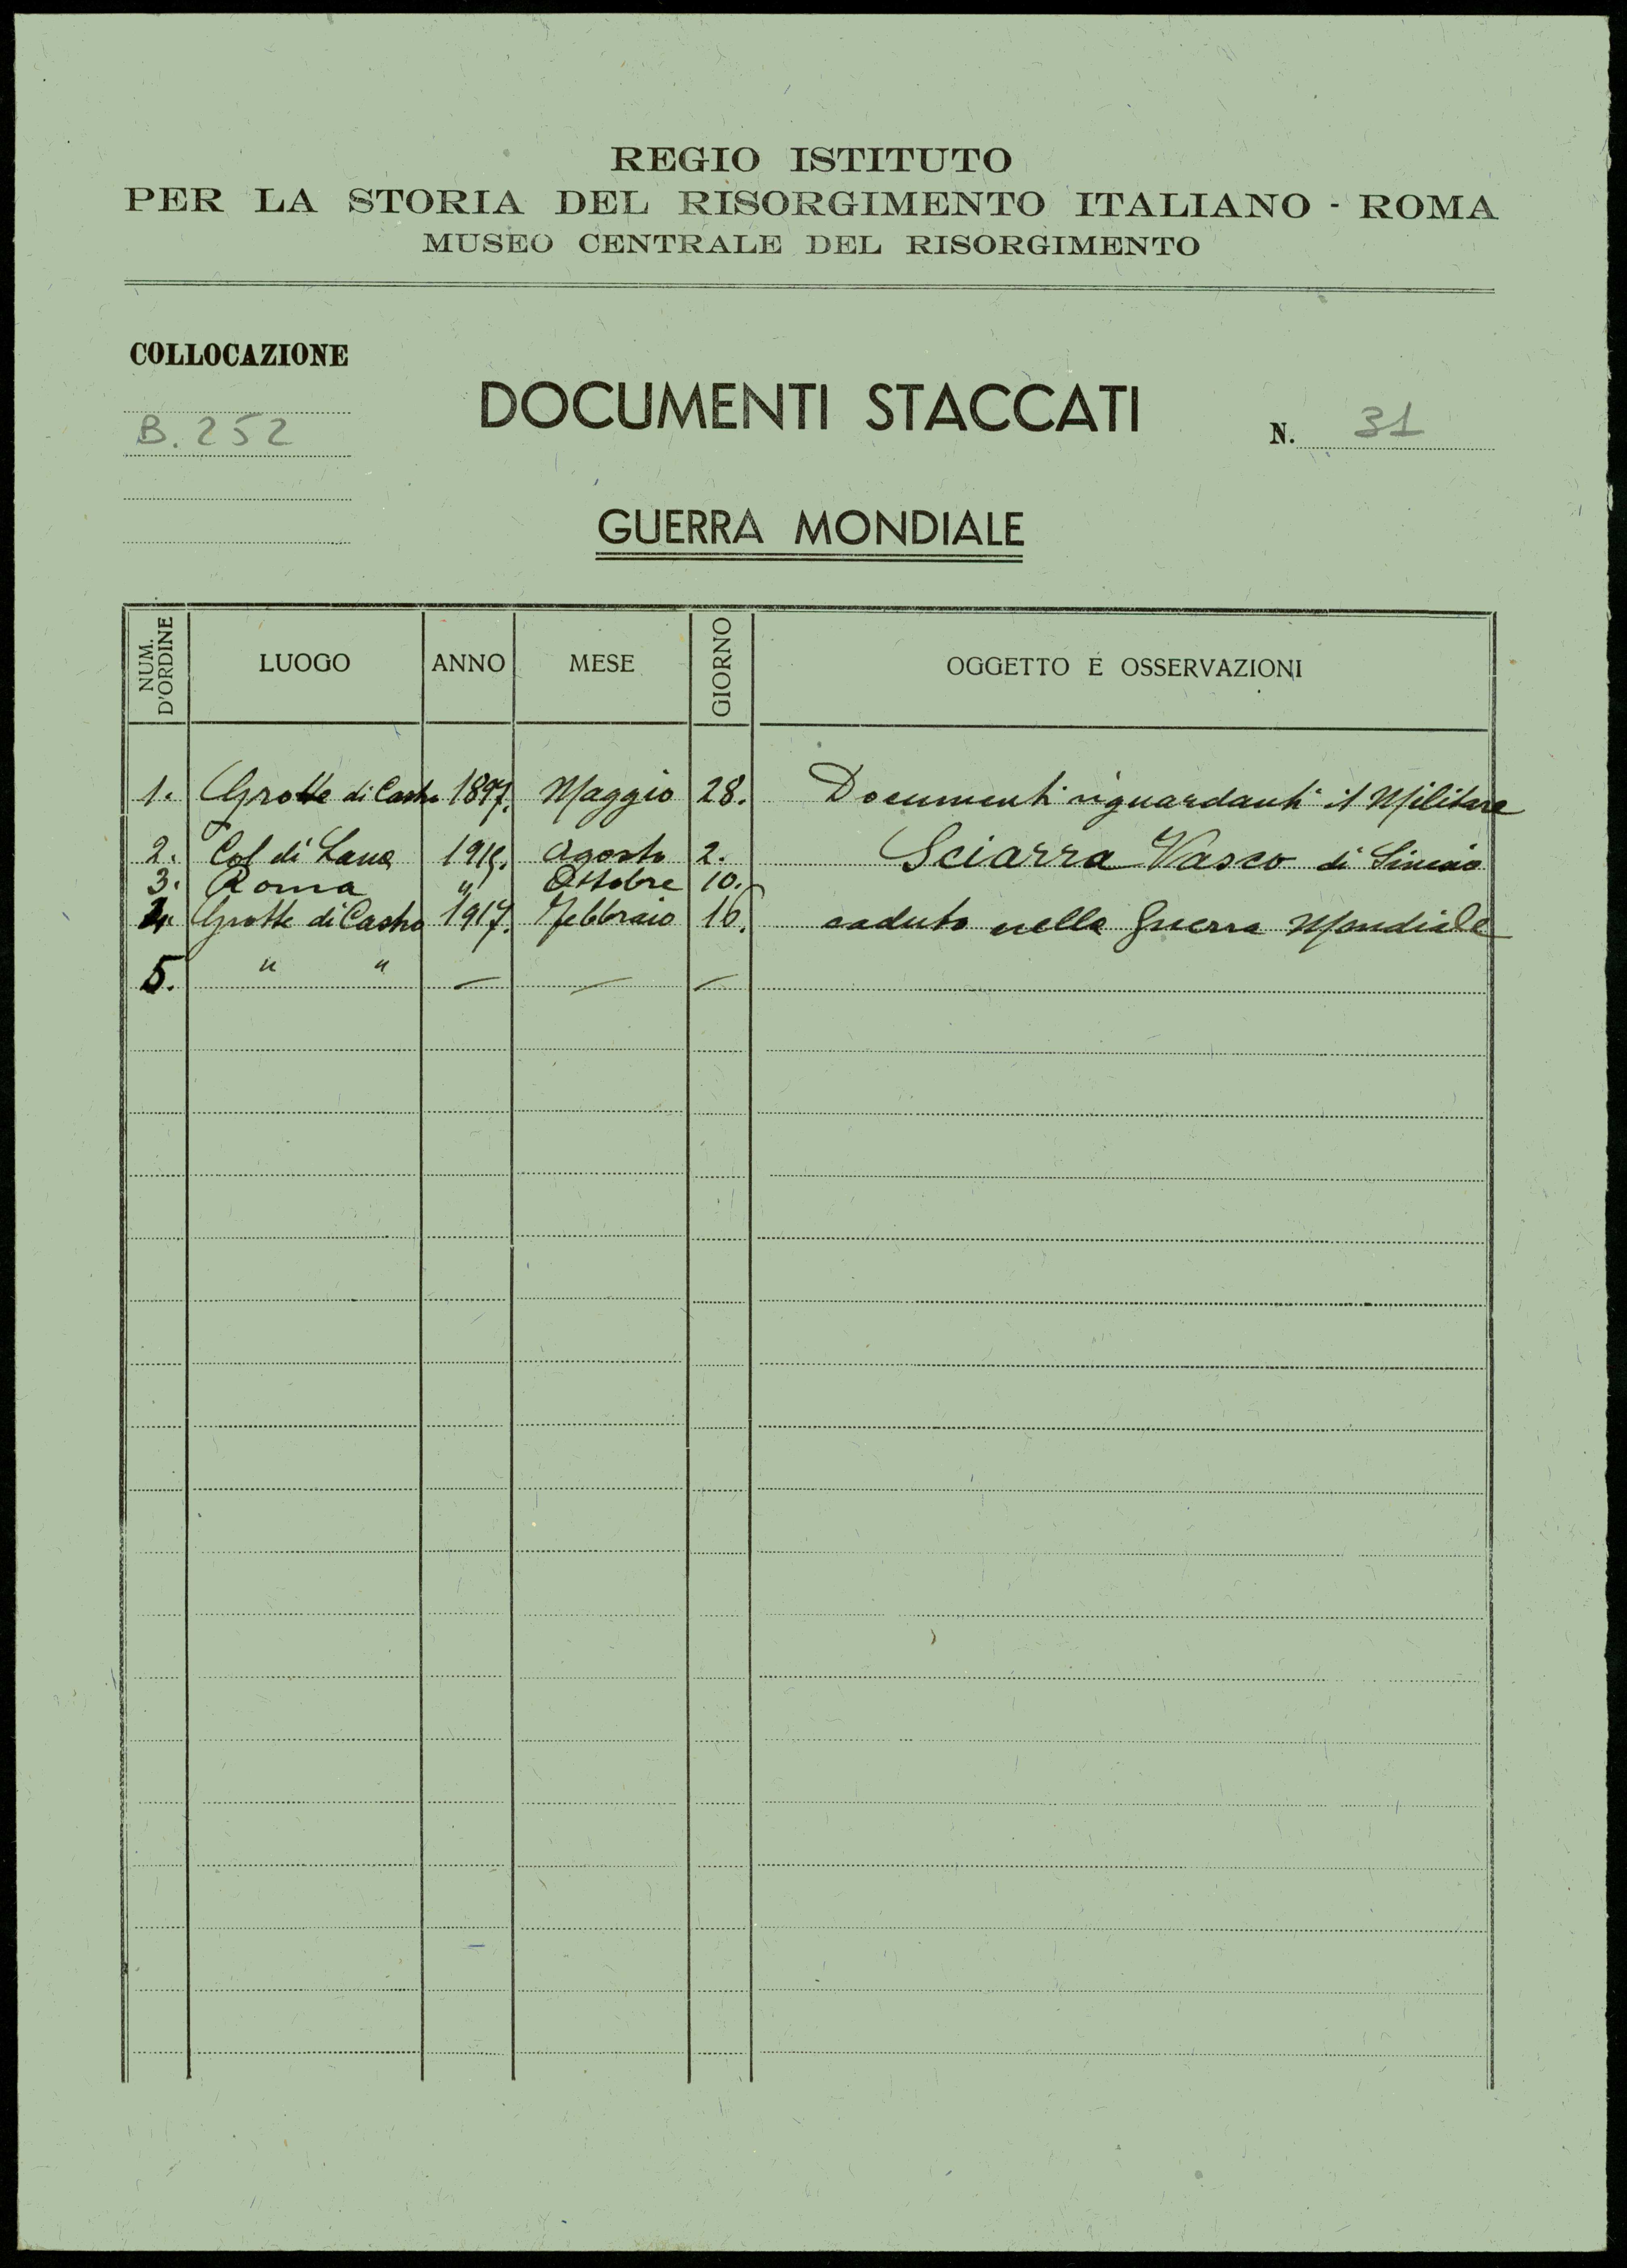 REGIO ISTITUTO
PER LA STORIA DEL RISORGIMENTO ITALIANO - ROMA
MUSEO CENTRALE DEL RISORGIMENTO
COLLOCAZIONE
B. 252
DOCUMENTI STACCATI
N. 31
GUERRA MONDIALE
NUM. D'ORDINE LUOGO ANNO MESE GIORNO OGGETTO E OSSERVAZIONI
1. Grotte di Castro 1897. Maggio 28. Documenti riguardanti il Militare
2. Col di Lana 1915. Agosto 2. Sciarra Vasco di
3. Roma " Ottobre 10.
4. Grotte di Castro 1917. Febbraio 16. caduto nella Guerra Mondiale
5. " " — — —